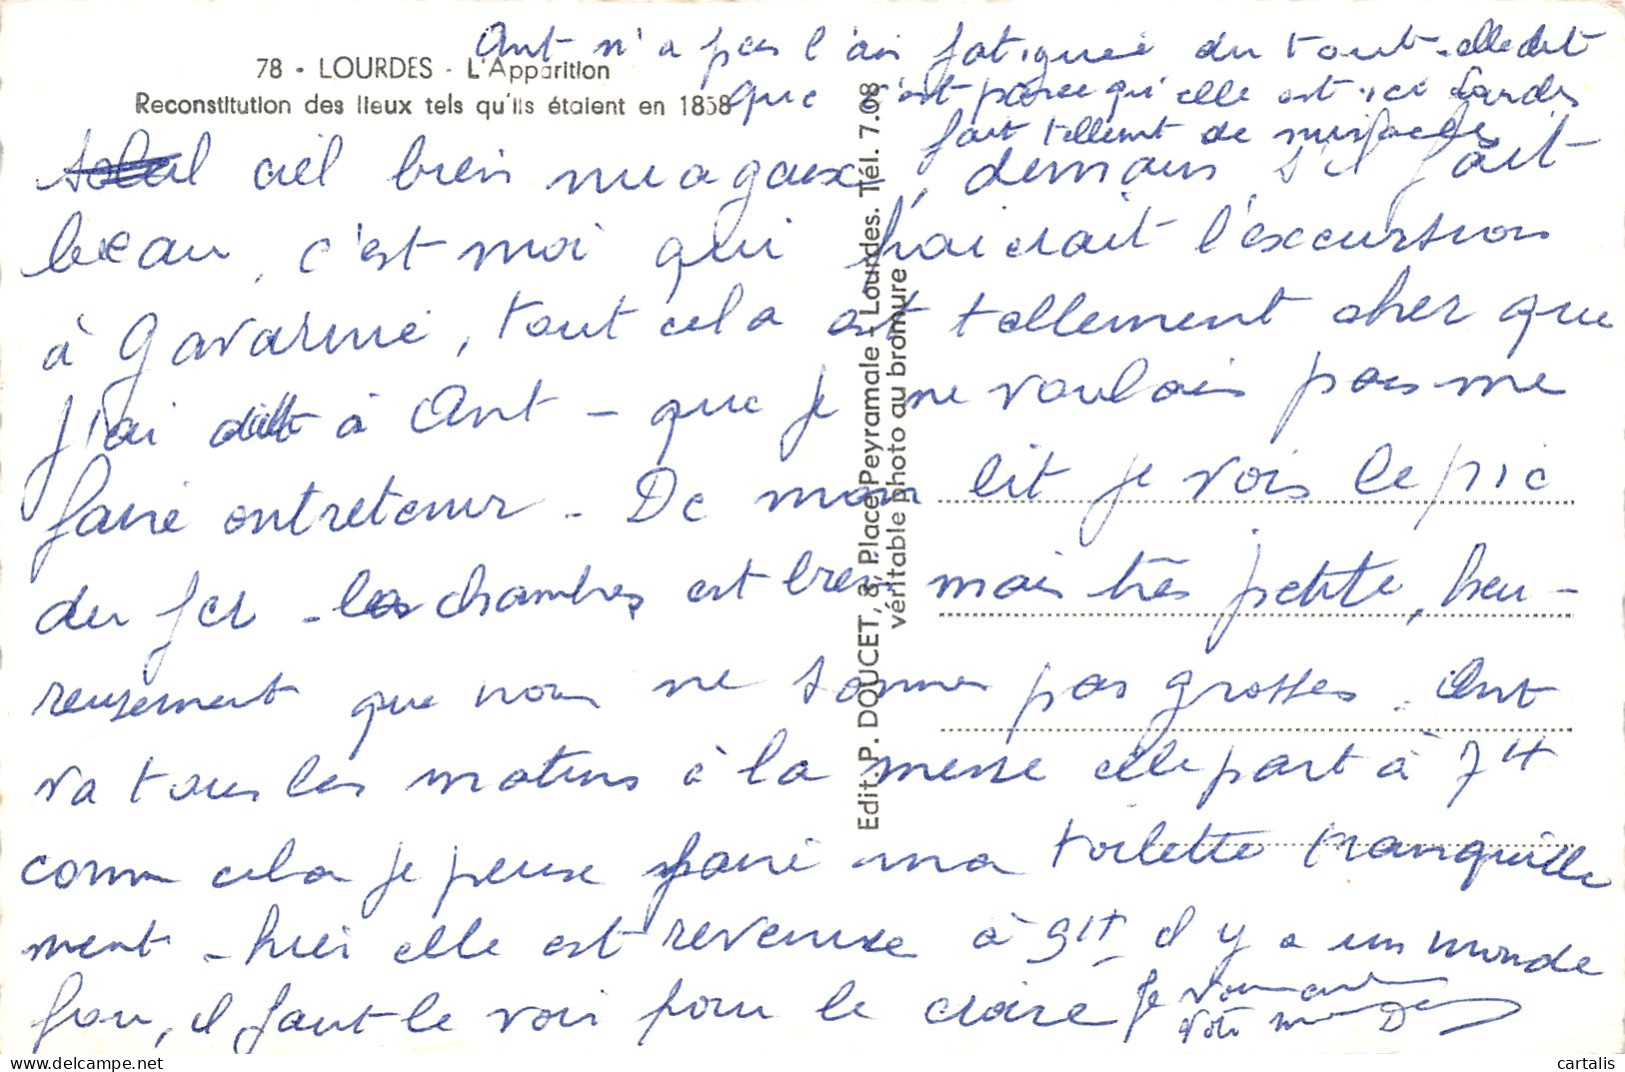 Ant n'a pas l'air fatiguée du tout. elle dit
78 - LOURDES - L'Apparition
Reconstitution des lieux tels qu'ils étaient en 1858
que c'est parce qu'elle est ici Lourdes
fait tellemt de miracles
ciel bien nuageux, demain s'il fait
beau, c'est moi qui l'excursion
à Gavarnie, tout cela est tellement cher que
j'ai dit à Ant - que je ne voulais pas me
faire entretenir - De mon lit je vois le pic
du Jer - les chambres est bien mais très petite, heu-
reusement que nous ne sommes pas grosses. Ant
va tous les matins à la messe elle part à 7H
comm cela je peuse faire ma toilette tranquille
ment - hier elle est revenue à 9H il y a un monde
fou, il faut le voir pour le croire Je
votre
Edit. P. DOUCET, 8, Place Peyramale - Lourdes. Tél. 7.08
véritable photo au bromure
cartalis